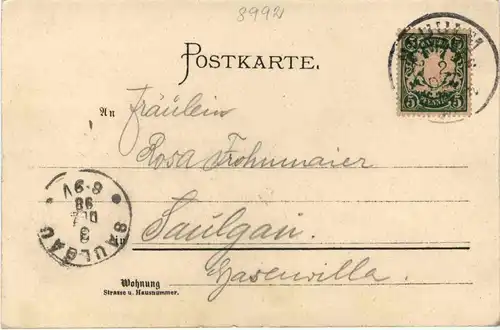 8992
POSTKARTE.
5 5
5 PFENNIG 5
An Fräulein
Rosa Frohnmaier
in Saulgau.
Hasenvilla.
SAULGAU
3
DEZ
98
8-9V
Wohnung
Strasse u. Hausnummer.